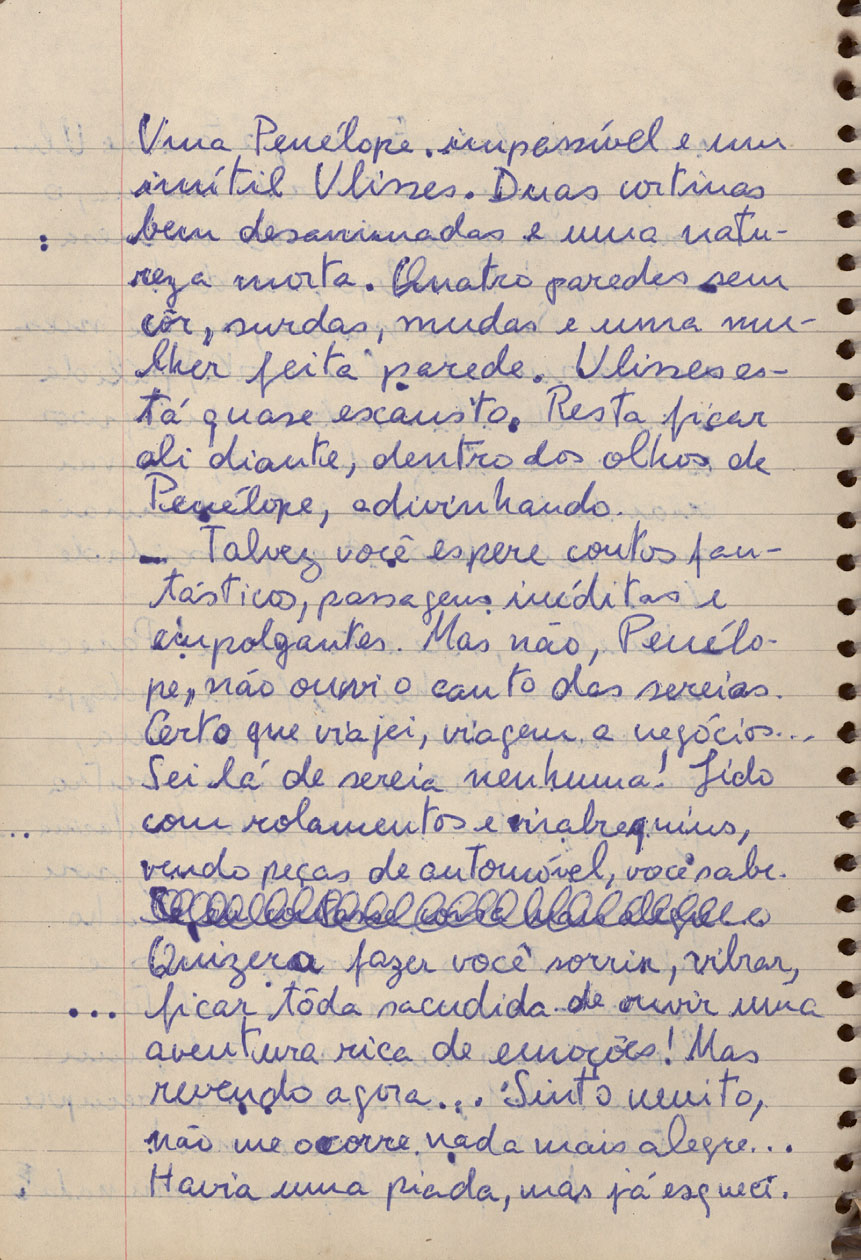 Uma Penélope impassível e um
inútil Ulisses. Duas cortinas
bem desanimadas e uma natu-
reza morta. Quatro paredes sem
côr, surdas, mudas e uma mu-
lher feita parede. Ulisses es-
tá quase exausto. Resta ficar
ali diante, dentro dos olhos de
Penélope, adivinhando.
– Talvez você espere contos fan-
tásticos, passagens inéditas e
empolgantes. Mas não, Penélo-
pe, não ouvi o canto das sereias.
Certo que viajei, viagem a negócios...
Sei lá de sereia nenhuma! Lido
com rolamentos e virabrequins,
vendo peças de automóvel, você sabe.
Quizera fazer você sorrir, vibrar,
ficar tôda sacudida de ouvir uma
aventura rica de emoções! Mas
revendo agora... Sinto muito,
não me ocorre nada mais alegre...
Havia uma piada, mas já esqueci.